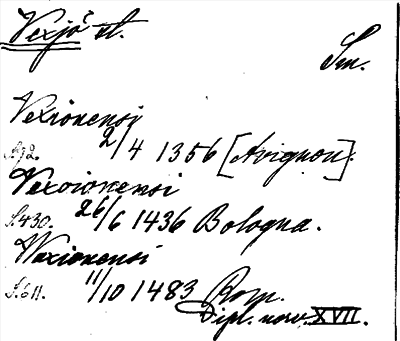 Vexjö st.
Sm.
Vexionensi
2/4 1356 [Avignon].
S. 92.
Vexoionensi
S. 430. 26/6 1436 Bologna.
Wexionensi
S. 611. 11/10 1483 Rom.
Dipl. norv. XVII.